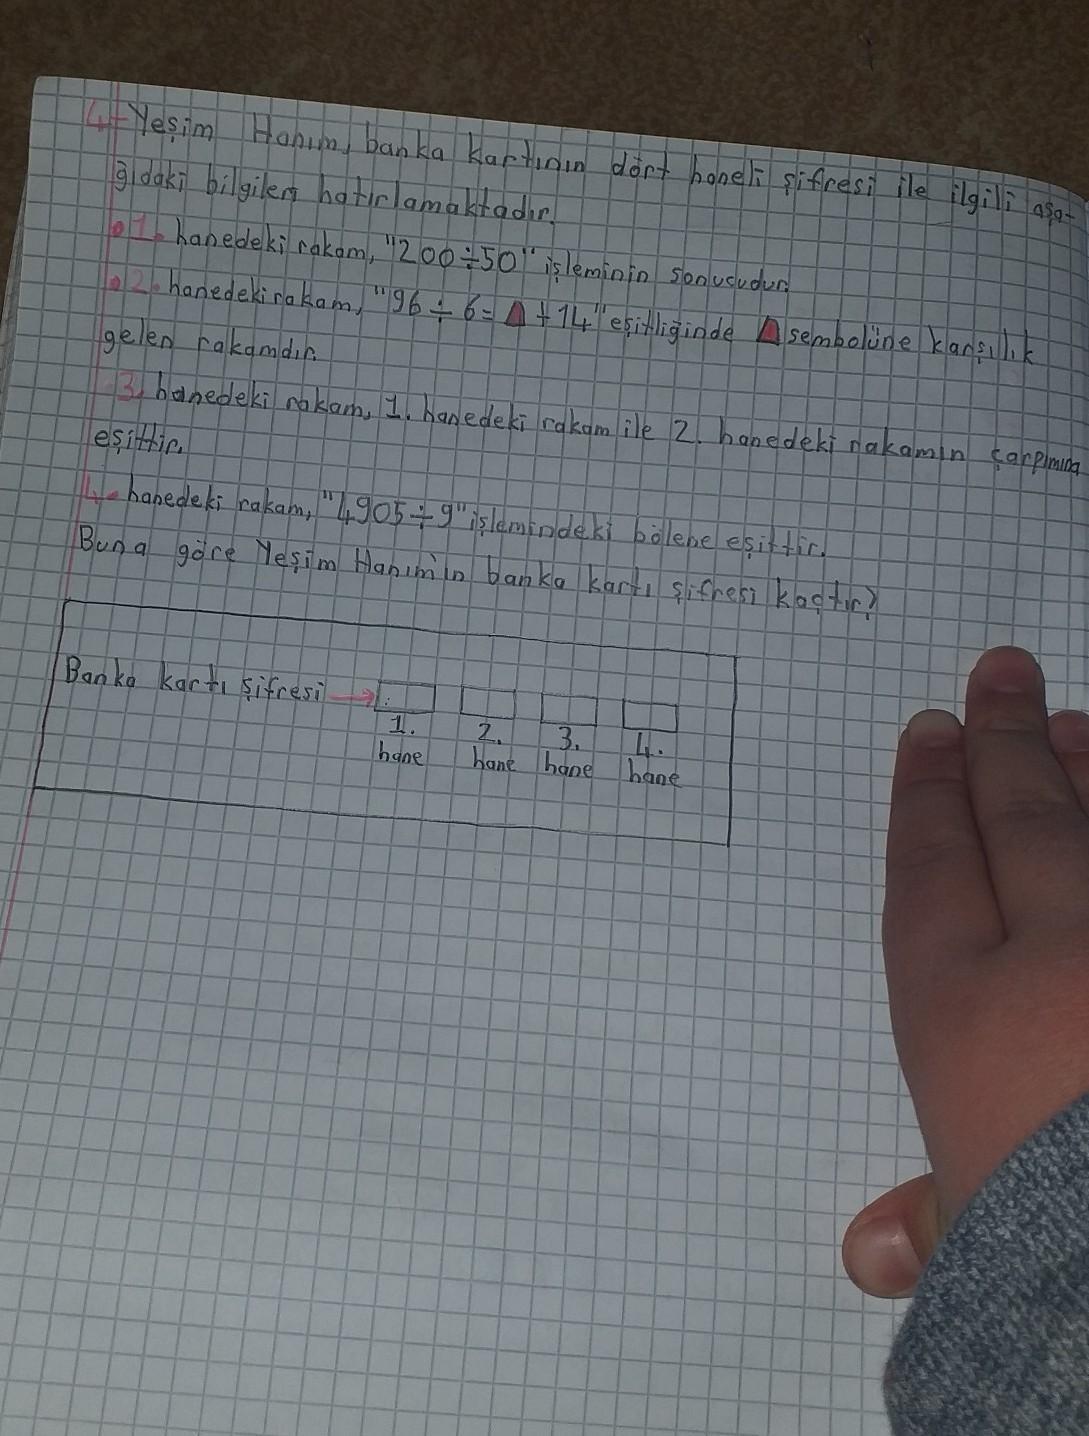 4- Yeşim Hanım, banka kartının dört haneli şifresi ile ilgili aşa-
ğıdaki bilgileri hatırlamaktadır.
1. hanedeki rakam, "200÷50" işleminin sonucudur.
2. hanedeki rakam, "96÷6=△+14" eşitliğinde △ sembolüne karşılık
gelen rakamdır.
3. hanedeki rakam, 1. hanedeki rakam ile 2. hanedeki rakamın çarpımına
eşittir.
4. hanedeki rakam, "4905÷9" işlemindeki bölene eşittir.
Buna göre Yeşim Hanım'ın banka kartı şifresi kaçtır?
Banka kartı şifresi →
1. 2. 3. 4.
hane hane hane hane